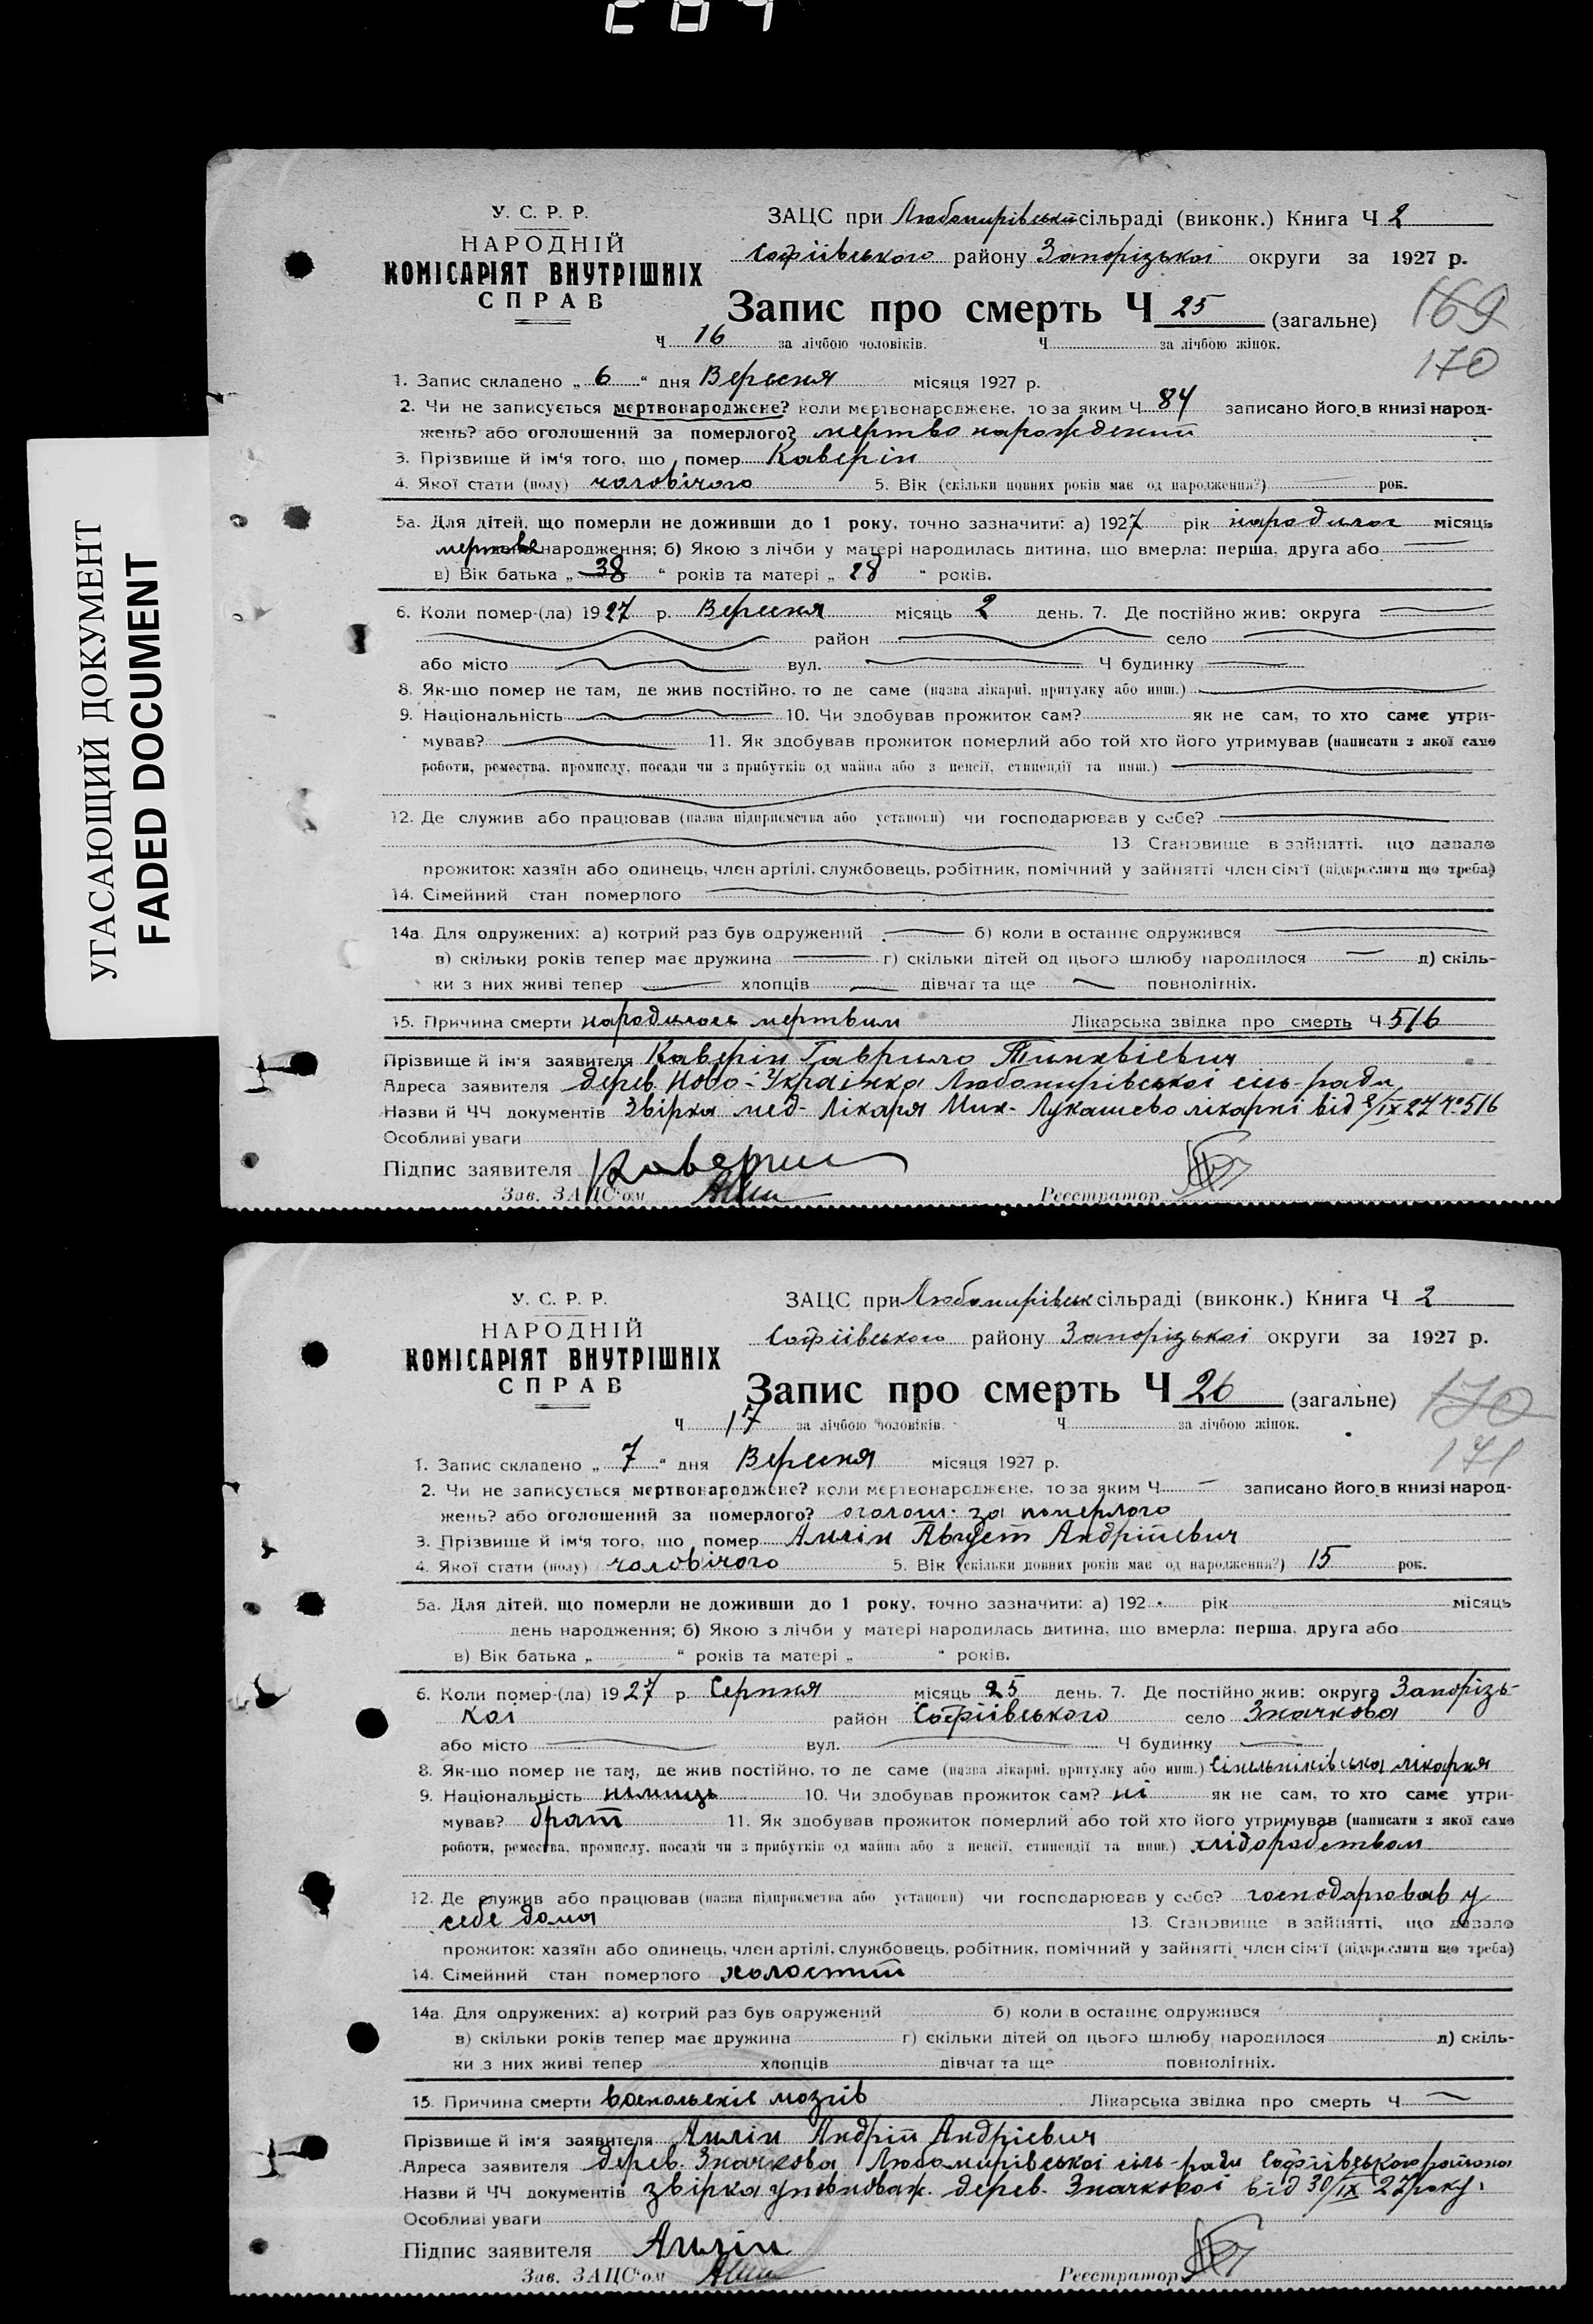 204
УГАСАЮЩИЙ ДОКУМЕНТ
FADED DOCUMENT
У. С. Р. Р.
НАРОДНІЙ
КОМІСАРІЯТ ВНУТРІШНІХ
СПРАВ
ЗАЦС при Любомирівській сільраді (виконк.) Книга Ч 2
Софіівського району Запорізькоі округи за 1927 р.
Запис про смерть Ч 25 (загальне)
169
170
Ч 16 за лічбою чоловіків. Ч за лічбою жінок.
1. Запис складено „ 6 “ дня Вересня місяця 1927 р.
2. Чи не записується мертвонароджене? коли мертвонароджене, то за яким Ч 84 записано його в книзі народ-
жень? або оголошений за померлого? мертво нарожденний
3. Прізвище й ім'я того, що помер Каверін
4. Якої стати (полу) чоловічого 5. Вік (скільки повних років має од народження?) рок.
5а. Для дітей, що померли не доживши до 1 року, точно зазначити: а) 1927 рік народилос місяць
мертве народження; б) Якою з лічби у матері народилась дитина, що вмерла: перша, друга або
в) Вік батька „ 38 “ років та матері „ 28 “ років.
6. Коли помер-(ла) 1927 р. Вересня місяць 2 день. 7. Де постійно жив: округа
район село
або місто вул. Ч будинку
8. Як-що помер не там, де жив постійно, то де саме (назва лікарні, притулку або инш.)
9. Національність 10. Чи здобував прожиток сам? як не сам, то хто саме утри-
мував? 11. Як здобував прожиток померлий або той хто його утримував (написати з якої саме
роботи, ремества, промислу, посади чи з прибутків од майна або з пенсії, стипендії та инш.)
12. Де служив або працював (назва підприємства або установи) чи господарював у себе?
13. Становище в зайнятті, що давало
прожиток: хазяїн або одинець, член артілі, службовець, робітник, помічний у зайнятті член сім'ї (підкреслити що треба)
14. Сімейний стан померлого
14а. Для одружених: а) котрий раз був одружений б) коли в останнє одружився
в) скільки років тепер має дружина г) скільки дітей од цього шлюбу народилося д) скіль-
ки з них живі тепер хлопців дівчат та ще повнолітніх.
15. Причина смерти народилось мертвим Лікарська звідка про смерть Ч 516
Прізвище й ім'я заявителя Каверін Гаврило
Адреса заявителя дерев. Ново-Украінка Любомирівськоі сіль-ради
Назви й ЧЧ документів Звірка мед-лікаря Мих-Лукашево лікарні від 2/IX 27 №516
Особливі уваги
Підпис заявителя Каверин
Зав. ЗАЦС'ом Реєстратор
У. С. Р. Р.
НАРОДНІЙ
КОМІСАРІЯТ ВНУТРІШНІХ
СПРАВ
ЗАЦС при Любомирівськ сільраді (виконк.) Книга Ч 2
Софіівського району Запорізькоі округи за 1927 р.
Запис про смерть Ч 26 (загальне)
170
171
Ч 17 за лічбою чоловіків. Ч за лічбою жінок.
1. Запис складено „ 7 “ дня Вересня місяця 1927 р.
2. Чи не записується мертвонароджене? коли мертвонароджене, то за яким Ч — записано його в книзі народ-
жень? або оголошений за померлого? оголош. за померлого
3. Прізвище й ім'я того, що помер Амлін Август Андрійевич
4. Якої стати (полу) чоловічого 5. Вік (скільки повних років має од народження?) 15 рок.
5а. Для дітей, що померли не доживши до 1 року, точно зазначити: а) 192 рік місяць
день народження; б) Якою з лічби у матері народилась дитина, що вмерла: перша, друга або
в) Вік батька „ “ років та матері „ “ років.
6. Коли помер-(ла) 1927 р. Серпня місяць 25 день. 7. Де постійно жив: округа Запорізь-
коі район Софіівського село Значкова
або місто вул. Ч будинку
8. Як-що помер не там, де жив постійно, то де саме (назва лікарні, притулку або инш.) Сінельніківська лікарня
9. Національність німиць 10. Чи здобував прожиток сам? ні як не сам, то хто саме утри-
мував? брат 11. Як здобував прожиток померлий або той хто його утримував (написати з якої саме
роботи, ремества, промислу, посади чи з прибутків од майна або з пенсії, стипендії та инш.) хлідоробством
12. Де служив або працював (назва підприємства або установи) чи господарював у себе? господарював у
себе дома 13. Становище в зайнятті, що давало
прожиток: хазяїн або одинець, член артілі, службовець, робітник, помічний у зайнятті член сім'ї (підкреслити що треба)
14. Сімейний стан померлого холостий
14а. Для одружених: а) котрий раз був одружений б) коли в останнє одружився
в) скільки років тепер має дружина г) скільки дітей од цього шлюбу народилося д) скіль-
ки з них живі тепер хлопців дівчат та ще повнолітніх.
15. Причина смерти мозгів Лікарська звідка про смерть Ч —
Прізвище й ім'я заявителя Амлін Андрій Андріевич
Адреса заявителя дерев. Значкова Любомирівськоі сіль-ради Софіівського района
Назви й ЧЧ документів звірка уповноваж. дерев. Значковоі від 30/IX 27 року.
Особливі уваги
Підпис заявителя Амлін
Зав. ЗАЦС'ом Реєстратор